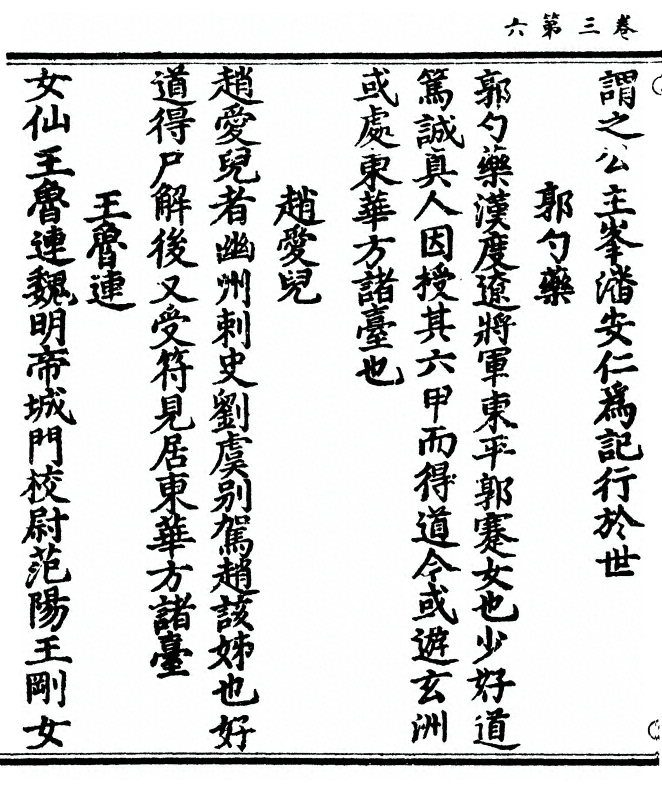 卷三第六
謂之公主峯潘安仁爲記行於世
郭勺藥
郭勺藥漢度遼將軍東平郭蹇女也少好道
篤誠真人因授其六甲而得道今或遊玄洲
或處東華方諸臺也
趙愛兒
趙愛兒者幽州刺史劉虞别駕趙該姊也好
道得尸解後又受符見居東華方諸臺
王魯連
女仙王魯連魏明帝城門校尉范陽王剛女